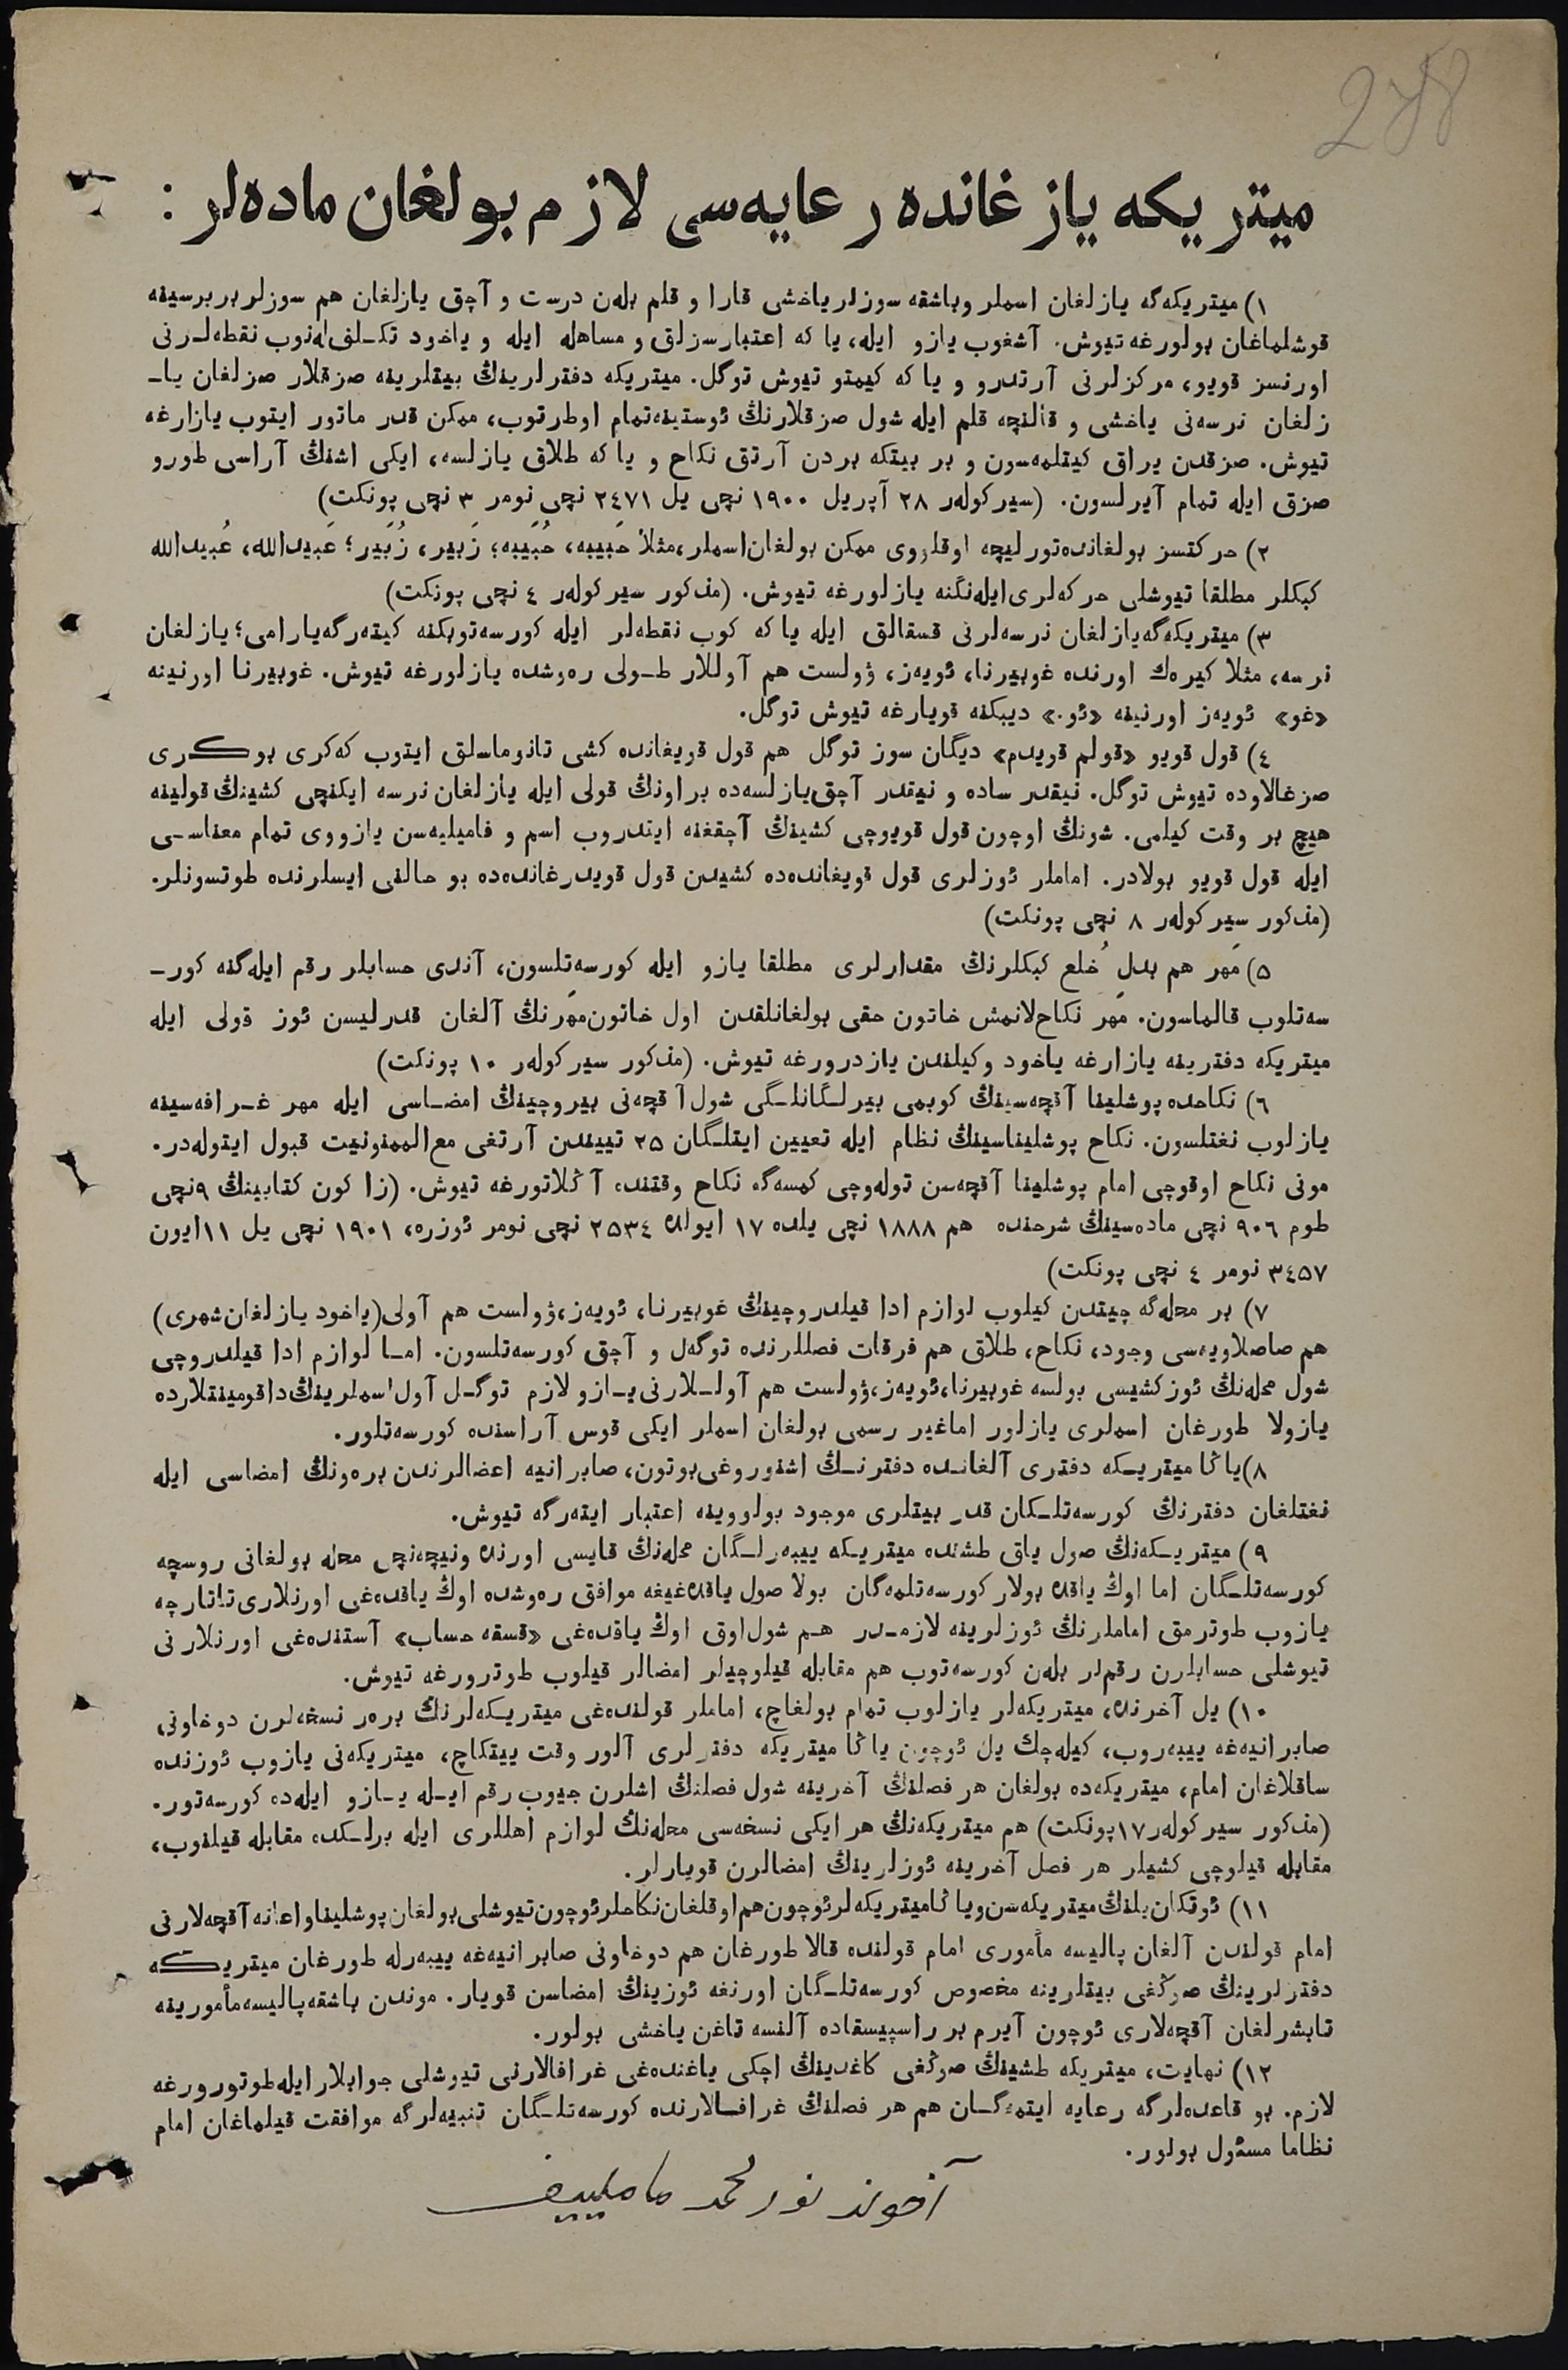 278
میتریکه یازغانده رعایه‌سی لازم بولغان ماده‌لر :
۱) میتریکه‌گه یازلغان اسملر وباشقه سوزلر یاخشی قارا و قلم بله‌ن درست و آچق یازلغان هم سوزلر بربرسینه
قوشلماغان بولورغه تیوش. آشغوب یازو ایله، یا که اعتبارسزلق و مساهله ایله و یاخود تکـلف‌له‌نوب نقطه‌لـرنی
اورنسز قویو، مرکزلرنی آرتدرو و یا که کیمتو تیوش توگل. میتریکه دفترلرینڭ بیتلرینه صزقلار صزلغان یاـ
زلغان نرسه‌نی یاخشی و قالنچه قلم ایله شول صزقلارنڭ ئوستینه‌تمام اوطرتوب، ممکن قدر ماتور ایتوب یازارغه
تیوش. صزقدن یراق کیتلمه‌سون و بر بیتکه بردن آرتق نکاح و یا که طلاق یازلسه، ایکی اشنڭ آراسی طورو
صزق ایله تمام آیرلسون. (سیرکوله‌ر ۲۸ آپریل ۱۹۰۰ نچی یل ۲٤۷۱ نچی نومر ۳ نچی پونکت)
۲) حرکتسز بولغانده‌تورلیچه اوقلووی ممکن بولغان‌اسملر،مثلاً حَبیبه، حُبَیبه؛ زَبیر، زُبَیر؛ عَبیدالله، عُبیدالله
کبکلر مطلقا تیوشلی حرکه‌لری‌ایله‌نگنه یازلورغه تیوش. (مذکور سیرکوله‌ر ٤ نچی پونکت)
۳) میتریکه‌گه‌یازلغان نرسه‌لرنی قسقالق ایله یا که کوب نقطه‌لر ایله کورسه‌توبکنه کیته‌رگه‌یارامی؛ یازلغان
نرسه، مثلا کیره‌ك اورنده غوبیرنا، ئویه‌ز، ۋولست هم آوللار طـولی ره‌وشده یازلورغه تیوش. غوبیرنا اورنینه
«غو» ئویه‌ز اورنینه «ئو.» دیبکنه قویارغه تیوش توگل.
٤) قول قویو «قولم قویدم» دیگان سوز توگل هم قول قویغانده کشی تانوماسلق ایتوب که‌کری بوکری
صزغالاوده تیوش توگل. نیقدر ساده و نیقدر آچق‌یازلسه‌ده براونڭ قولی ایله یازلغان نرسه ایکنچی کشینڭ قولینه
هیچ بر وقت کیلمی. شونڭ اوچون قول قویوچی کشینڭ آچقغنه ایتدروب اسم و فامیلیه‌سن یازووی تمام معناسـی
ایله قول قویو بولادر. اماملر ئوزلری قول قویغانده‌ده کشیدن قول قویدرغانده‌ده بو حالنی ایسلرنده طوتسونلر.
(مذکور سیرکوله‌ر ۸ نچی پونکت)
۵) مَهر هم بدلِ خُلع کبکلرنڭ مقدارلری مطلقا یازو ایله کورسه‌تلسون، آندی حسابلر رقم ایله‌گنه کورـ
سه‌تلوب قالماسون. مَهر نکاح‌لانمش خاتون حقی بولغانلقدن اول خاتون‌مَهرنڭ آلغان قدرلیسن ئوز قولی ایله
میتریکه دفترینه یازارغه یاخود وکیلندن یازدرورغه تیوش. (مذکور سیرکوله‌ر ۱۰ پونکت)
٦) نکاحده پوشلینا آقچه‌سینڭ کوبمی بیرلـگانلـگی شول آقچه‌نی بیروچینڭ امضـاسی ایله مهر غـرافه‌سینه
یازلوب نغتلسون. نکاح پوشلیناسینڭ نظام ایله تعیین ایتلـگان ۲۵ تییندن آرتغی مع‌الممنونیت قبول ایتوله‌در.
مونی نکاح اوقوچی امام پوشلینا آقچه‌سن توله‌وچی کمسه‌گه نکاح وقتنده آڭلاتورغه تیوش. (زاکون کتابینڭ ۹نچی
طوم ۹۰٦ نچی ماده‌سینڭ شرحنده هم ۱۸۸۸ نچی یلده ۱۷ ایولده ۲۵۳٤ نچی نومر ئوزره، ۱۹۰۱ نچی یل ۱۱ایون
۳٤۵۷ نومر ٤ نچی پونکت)
۷) بر محله‌گه چیتدن کیلوب لوازم ادا قیلدروچینڭ غوبیرنا، ئویه‌ز،ۋولست هم آولی(یاخود یازلغان‌شهری)
هم صاصلاویه‌سی وجود، نکاح، طلاق هم فرقات فصللرنده توگه‌ل و آچق کورسه‌تلسون. امـا لوازم ادا قیلدروچی
شول محله‌نڭ ئوزکشیسی بولسه غوبیرنا،ئویه‌ز،ۋولست هم آولـلارنی‌یـازو لازم توگـل آول اسملرینڭ‌داقومینتلارده
یازولا طورغان اسملری یازلور اماغیر رسمی بولغان اسملر ایکی قوس آراسنده کورسه‌تلور.
۸)یاڭا میتریـکه دفتری آلغانـده دفترنـڭ اشنوروغی‌بوتون، صابرانیه اعضالرندن بره‌ونڭ امضاسی ایله
نغتلغان دفترنڭ کورسه‌تلـکان قدر بیتلری موجود بولووینه اعتبار ایته‌رگه تیوش.
۹) میتریـکه‌نڭ صول یاق طشنده میتریـکه ییبه‌رلـگان محله‌نڭ قایسی اورنده ونیچه‌نچی محله بولغانی روسچه
کورسه‌تلـگان اما اوڭ یاقده بولار کورسه‌تلمه‌گان بولا صول یاقده‌غیغه موافق ره‌وشده اوڭ یاقده‌غی اورنلاری‌تاتارچه
یازوب طوترمق اماملرنڭ ئوزلرینه لازمـدر هـم شول‌اوق اوڭ یاقده‌غی «قسقه حساب» آستنده‌غی اورنلارنی
تیوشلی حسابلرن رقم‌لر بله‌ن کورسه‌توب هم مقابله قیلوچیلر امضالر قیلوب طوترورغه تیوش.
۱۰) یل آخرنده، میتریکه‌لر یازلوب تمام بولغاچ، اماملر قولنده‌غی میتریـکه‌لرنڭ بره‌ر نسخه‌لرن دوخاونی
صابرانیه‌غه ییبه‌روب، کیله‌چك یل ئوچون یاڭا میتریکه دفترلری آلور وقت ییتکاچ، میتریکه‌نی یازوب ئوزنده
ساقلاغان امام، میتریکه‌ده بولغان هر فصلنڭ آخرینه شول فصلنڭ اشلرن جیوب رقم ایـله یـازو ایله‌ده کورسه‌تور.
(مذکور سیرکوله‌ر۱۷پونکت) هم میتریکه‌نڭ هر ایکی نسخه‌سی محله‌نڭ لوازم اهللری ایله برلـکده مقابله قیلنوب،
مقابله قیلوچی کشیلر هر فصل آخرینه ئوزلرینڭ امضالرن قویارلر.
۱۱) ئوتکان‌یلنڭ‌میتریکه‌سن‌ویاڭامیتریکه‌لرئوچون‌هم‌اوقلغان‌نکاحلرئوچون‌تیوشلی‌بولغان‌پوشلیناواعانه‌آقچه‌لارنی
امام قولندن آلغان پالیسه مأموری امام قولنده قالا طورغان هم دوخاونی صابرانیه‌غه ییبه‌رله طورغان میتریـکه
دفترلرینڭ صوڭغی بیتلرینه مخصوص کورسه‌تلـگان اورنغه ئوزینڭ امضاسن قویار. موندن باشقه‌پالیسه‌مأمورینه
تابشرلغان آقچه‌لاری ئوچون آیرم بر راسپیسقاده آلنسه تاغن یاخشی بولور.
۱۲) نهایت، میتریکه طشینڭ صوڭغی کاغدینڭ اچکی یاغنده‌غی غرافالارنی تیوشلی جوابلارایله‌طوتورورغه
لازم. بو قاعده‌لرگه رعایه ایتمه‌گـان هم هر فصلنڭ غرافـالارنده کورسه‌تلـگان تنبیه‌لرگه موافقت قیلماغان امام
نظاما مسئول بولور.
آخوند نورمحمد ماملییف